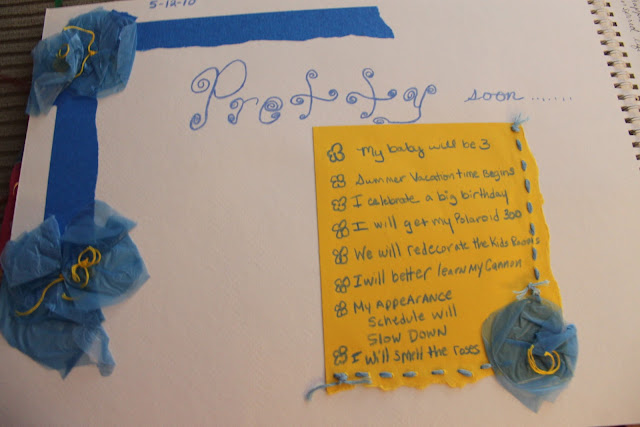 5-12-10
Pretty soon.......
My baby will be 3
Summer Vacation time Begins
I celebrate a big birthday
I will get my Polaroid 300
We will redecorate the Kids Rooms
I will better learn My Cannon
My Appearance
Schedule will
Slow Down
I will smell the roses